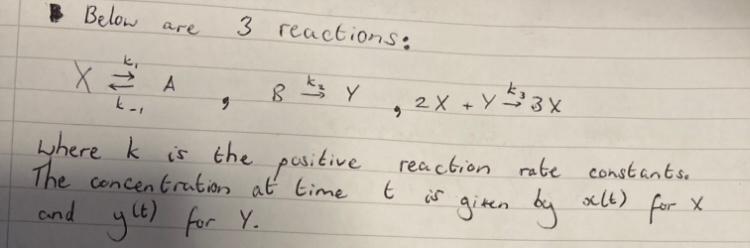 Below are 3 reactions:
X ⇌ A (k₁, k₋₁) , B →(k₂) Y , 2X + Y →(k₃) 3X
where k is the positive reaction rate constants.
The concentration at time t is given by x(t) for X
and y(t) for Y.